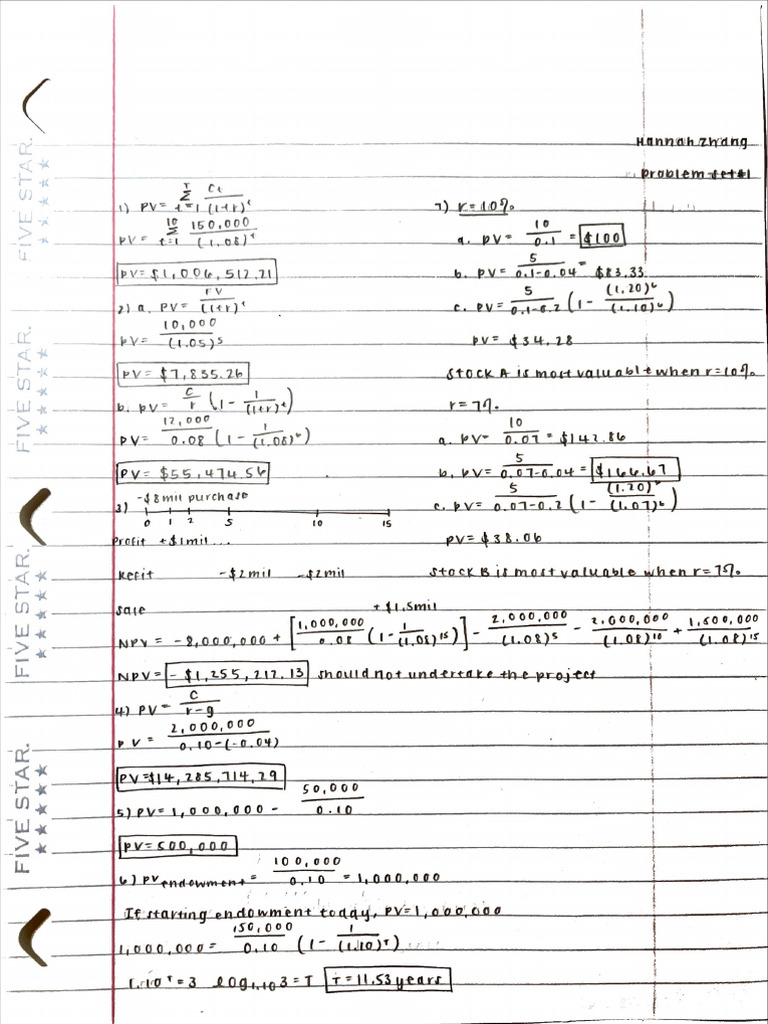 Hannah Zhang
Problem Set #1
1) PV = T Σ t=1 Ct / (1+r)^t
PV = 10 Σ t=1 150,000 / (1.08)^t
PV = $1,006,512.21
2) a. PV = FV / (1+r)^t
PV = 10,000 / (1.05)^5
PV = $7,835.26
b. PV = C/r (1 - 1/(1+r)^t)
PV = 12,000/0.08 (1 - 1/(1.08)^6)
PV = $55,474.56
3) -$8mil purchase
0 1 2 5 10 15
Profit +$1mil...
Refit -$2mil -$2mil
Sale +$1.5mil
NPV = -8,000,000 + [1,000,000/0.08 (1 - 1/(1.08)^15)] - 2,000,000/(1.08)^5 - 2,000,000/(1.08)^10 + 1,500,000/(1.08)^15
NPV = -$1,255,212.13 should not undertake the project
4) PV = C/r-g
PV = 2,000,000 / 0.10-(-0.04)
PV=$14,285,714.29
5) PV = 1,000,000 - 50,000/0.10
PV = 500,000
6) PV endowment = 100,000/0.10 = 1,000,000
If starting endowment today, PV=1,000,000
1,000,000 = 150,000/0.10 (1 - 1/(1.10)^T)
1.10^T = 3 log1.10 3 = T T = 11.53 years
7) r=10%
a. PV = 10/0.1 = $100
b. PV = 5/0.1-0.04 = $83.33
c. PV = 5/0.1-0.2 (1 - (1.20)^6/(1.10)^6)
PV = $34.28
Stock A is most valuable when r=10%
r=7%
a. PV = 10/0.07 = $142.86
b. PV = 5/0.07-0.04 = $166.67
c. PV = 5/0.07-0.2 (1 - (1.20)^6/(1.07)^6)
PV = $38.06
Stock B is most valuable when r=7%
FIVE STAR.
FIVE STAR.
FIVE STAR.
FIVE STAR.